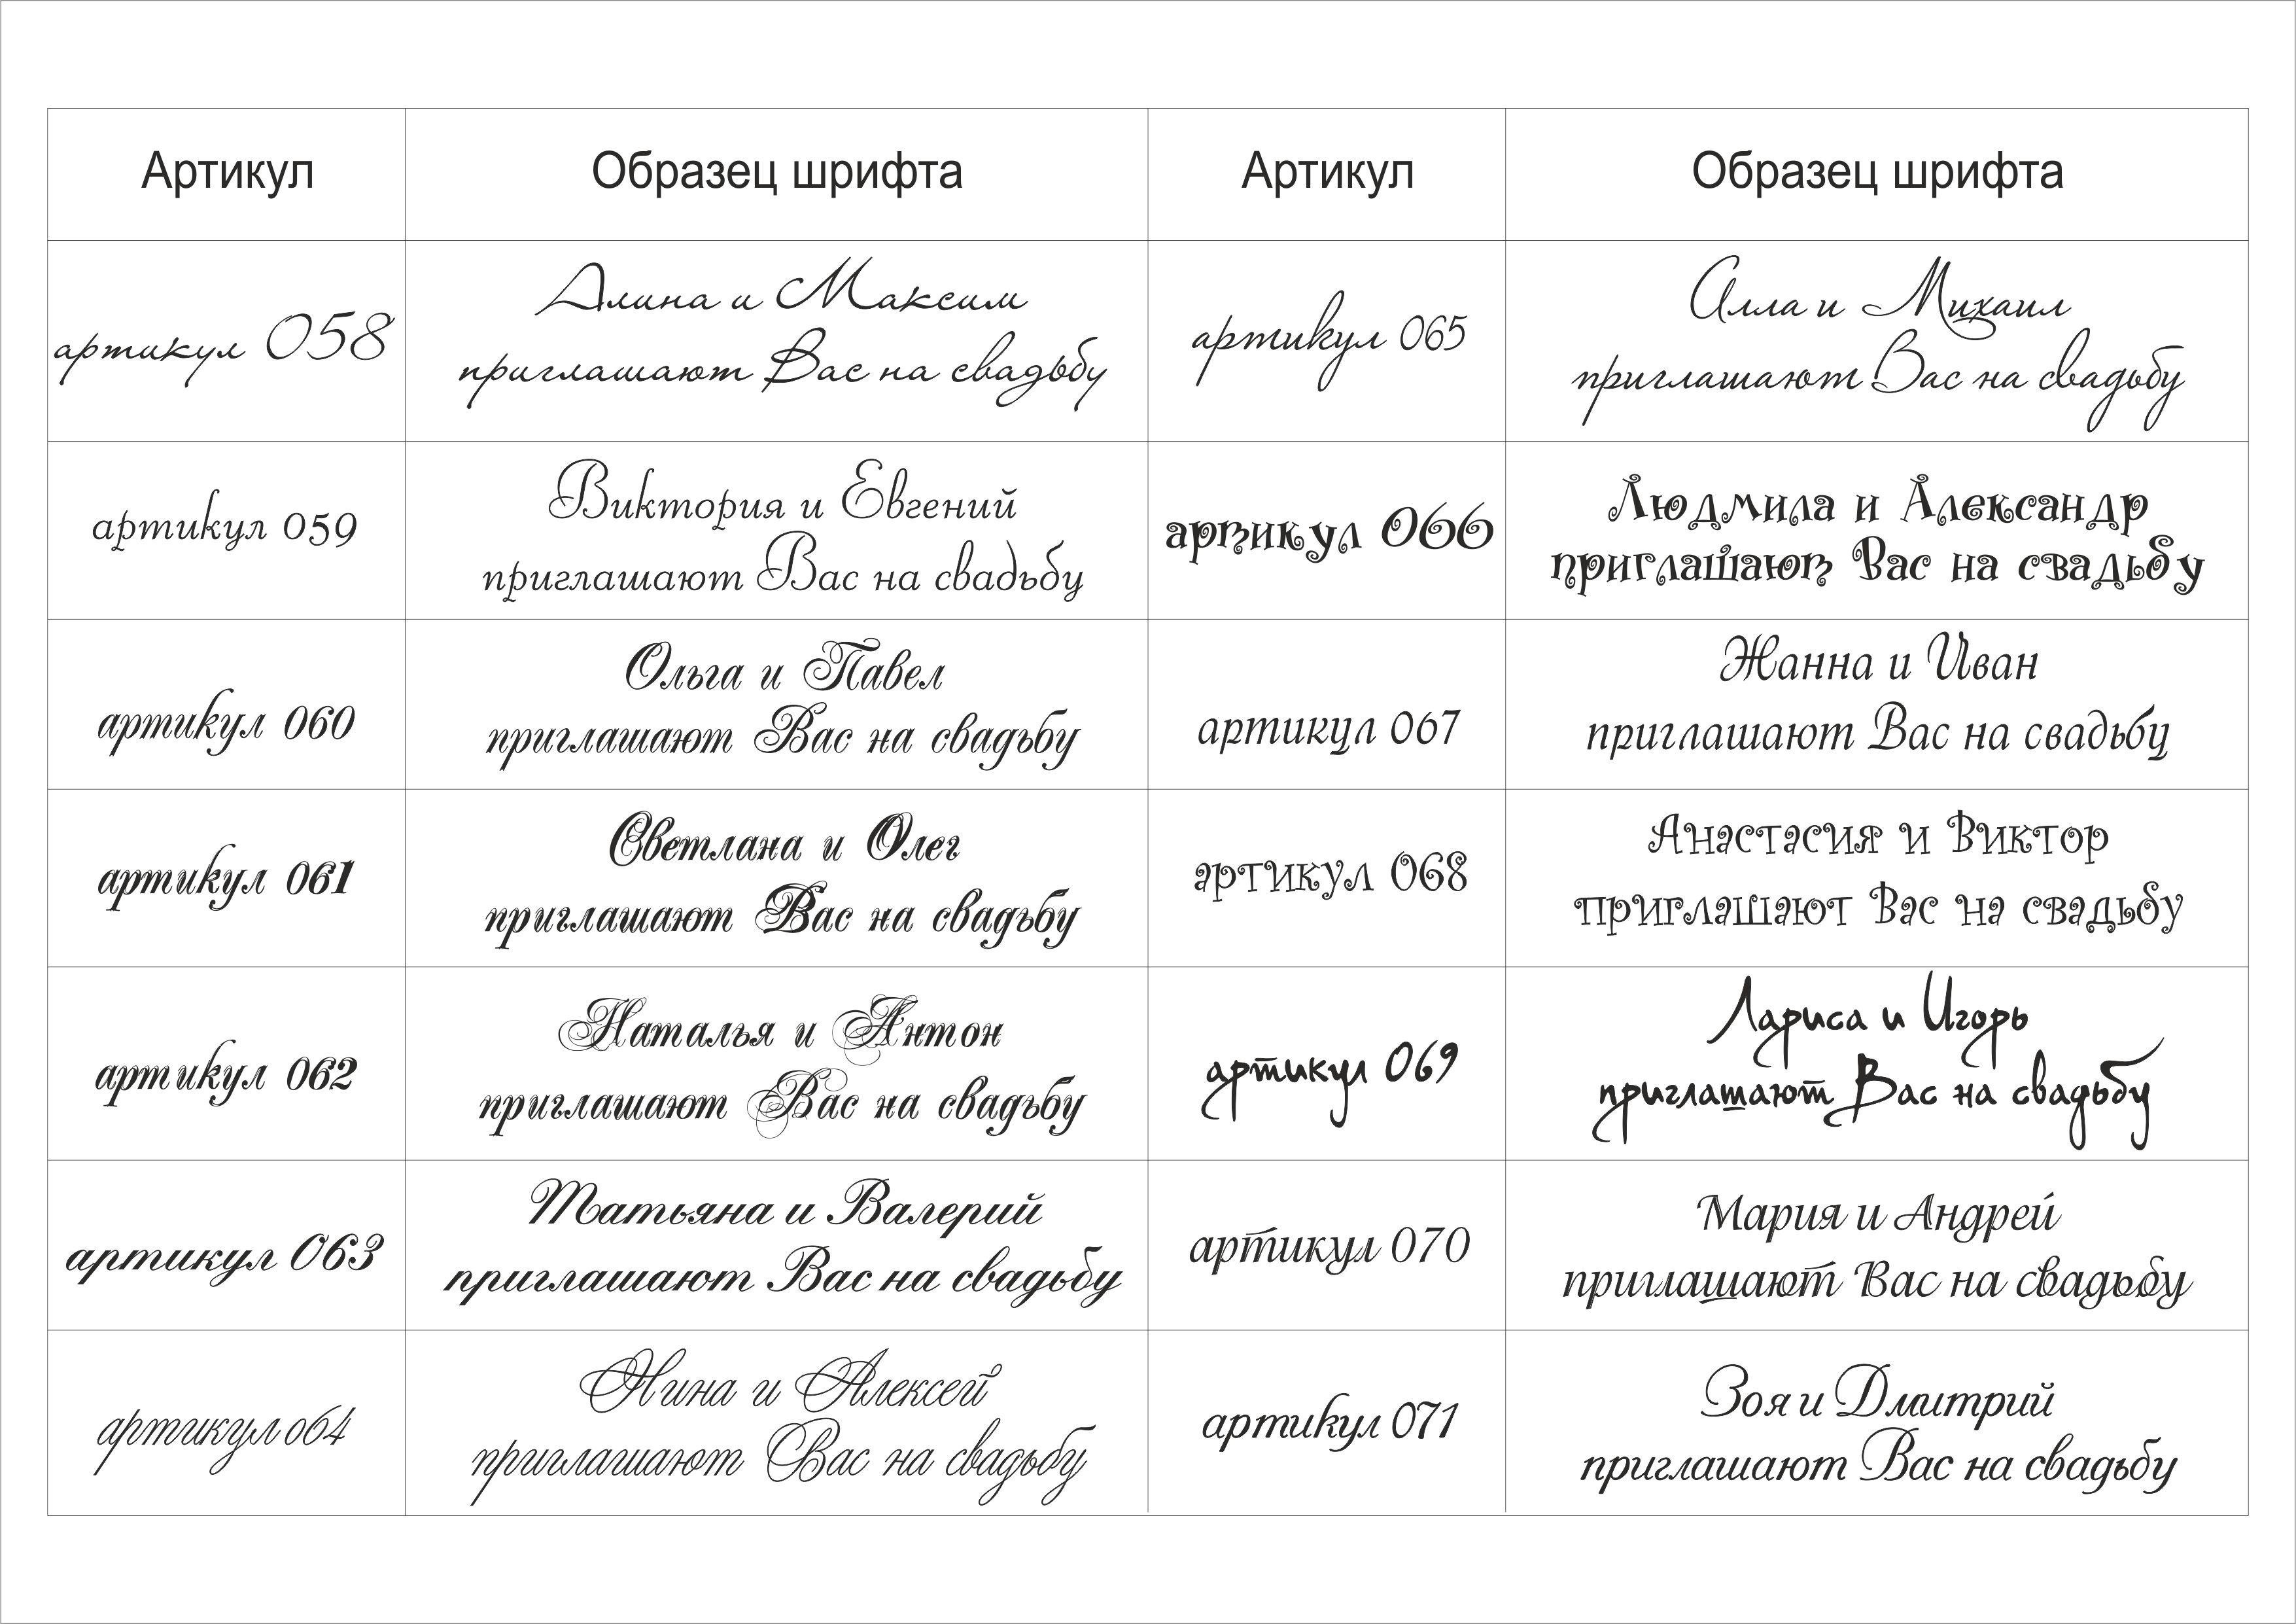 Артикул Образец шрифта Артикул Образец шрифта
артикул 058
Алина и Максим
приглашают Вас на свадьбу
артикул 065
Алла и Михаил
приглашают Вас на свадьбу
артикул 059
Виктория и Евгений
приглашают Вас на свадьбу
артикул 066
Людмила и Александр
приглашают Вас на свадьбу
артикул 060
Ольга и Павел
приглашают Вас на свадьбу
артикул 067
Жанна и Иван
приглашают Вас на свадьбу
артикул 061
Светлана и Олег
приглашают Вас на свадьбу
артикул 068
Анастасия и Виктор
приглашают Вас на свадьбу
артикул 062
Наталья и Антон
приглашают Вас на свадьбу
артикул 069
Лариса и Игорь
приглашают Вас на свадьбу
артикул 063
Татьяна и Валерий
приглашают Вас на свадьбу
артикул 070
Мария и Андрей
приглашают Вас на свадьбу
артикул 064
Нина и Алексей
приглашают Вас на свадьбу
артикул 071
Зоя и Дмитрий
приглашают Вас на свадьбу